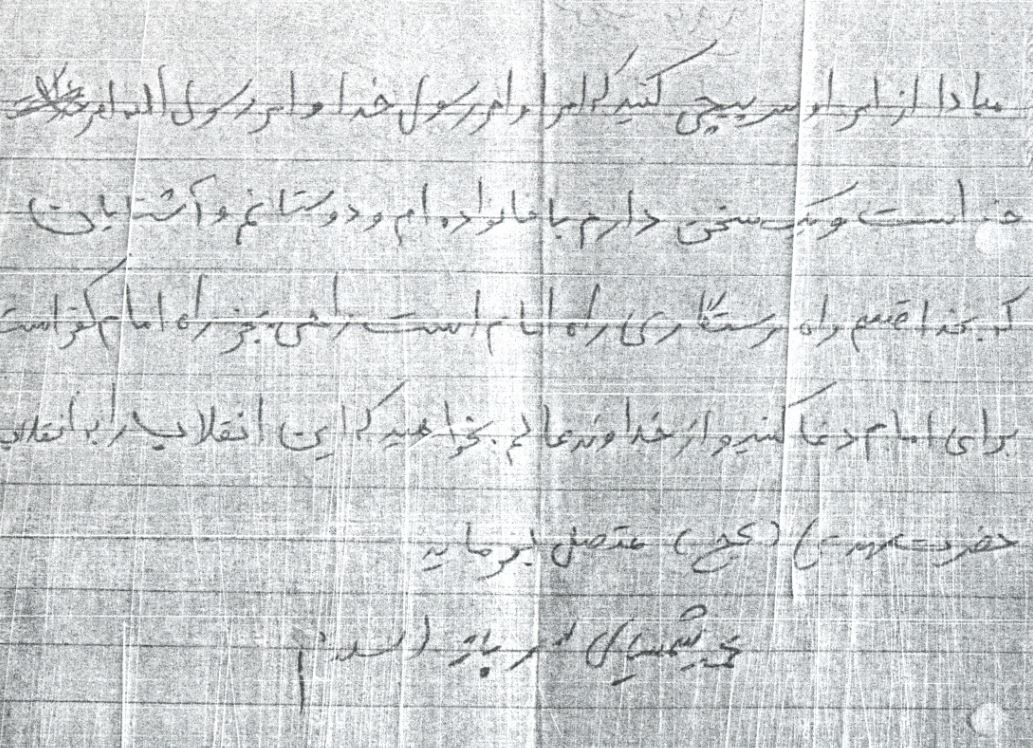 مبادا از امر او سرپیچی کنید که امر او امر رسول خدا و امر رسول الله امر
خداست و یک سخن دارم با خانواده ام و دوستانم و آشنایان
که بخدا قسم راه رستگاری راه امام است راهی بجز راه امام کفر است
برای امام دعا کنید و از خداوند عالم بخواهید که این انقلاب را به انقلاب
حضرت مهدی (عج) متصل بفرماید